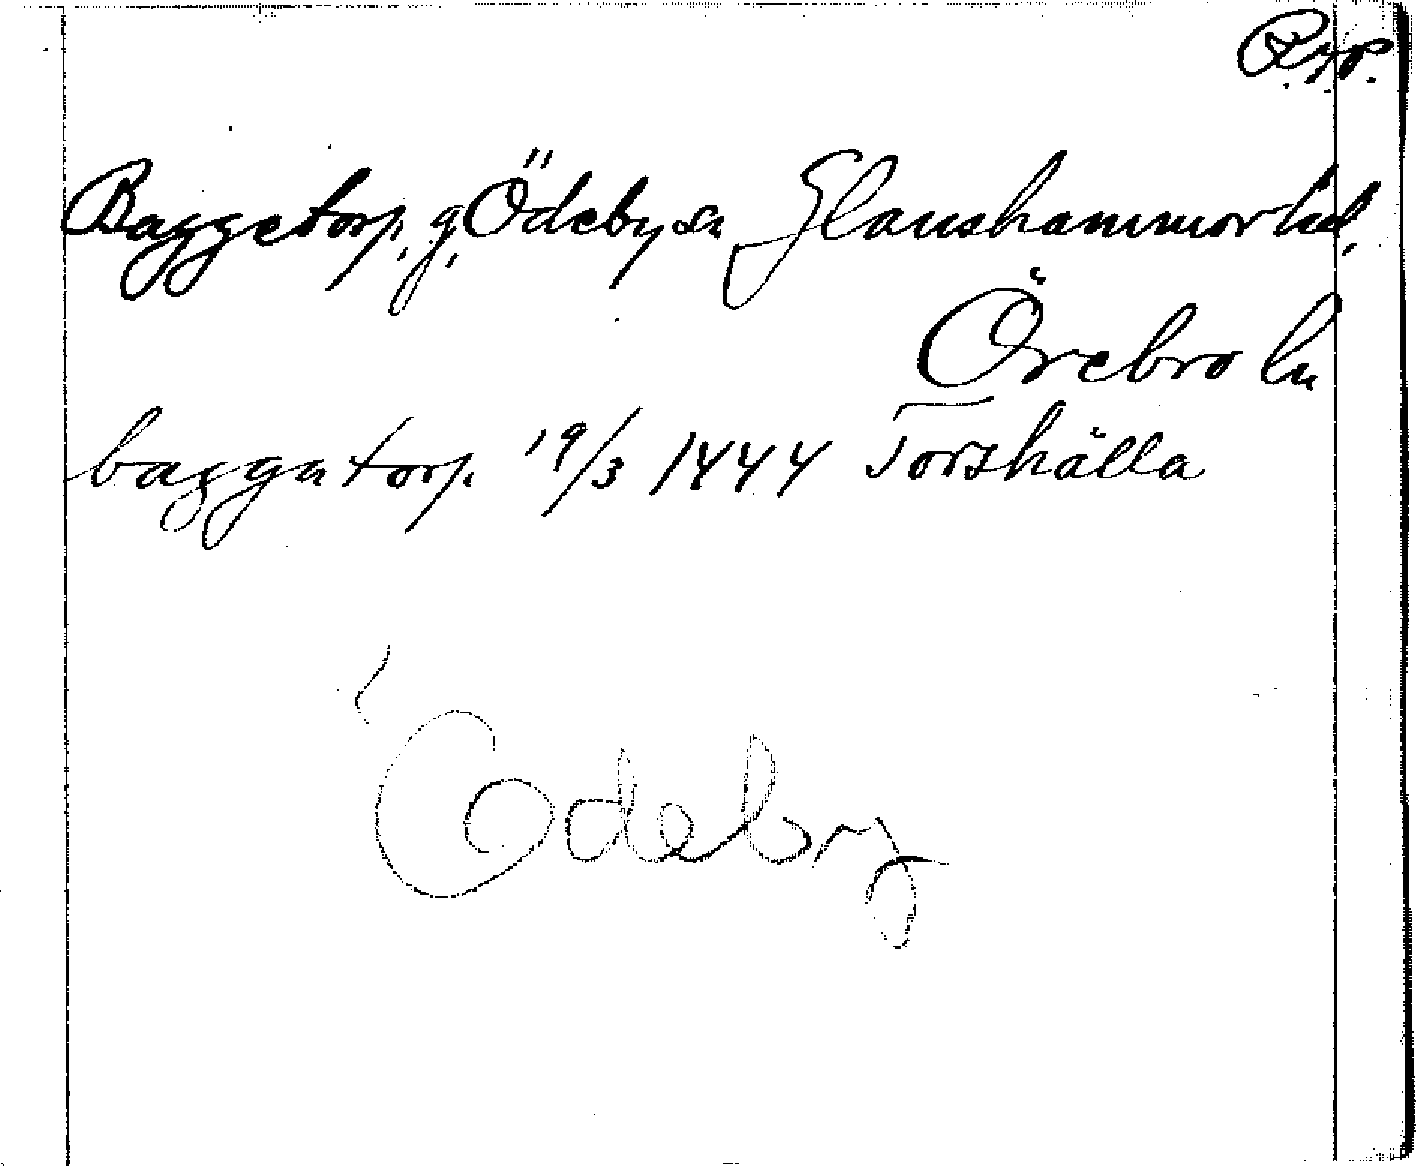 Rzp.
Baggetorp, g, Ödeby sn Glanshammar hd,
Örebro ln
baggatorp 19/3 1444 Torshälla
Ödeby